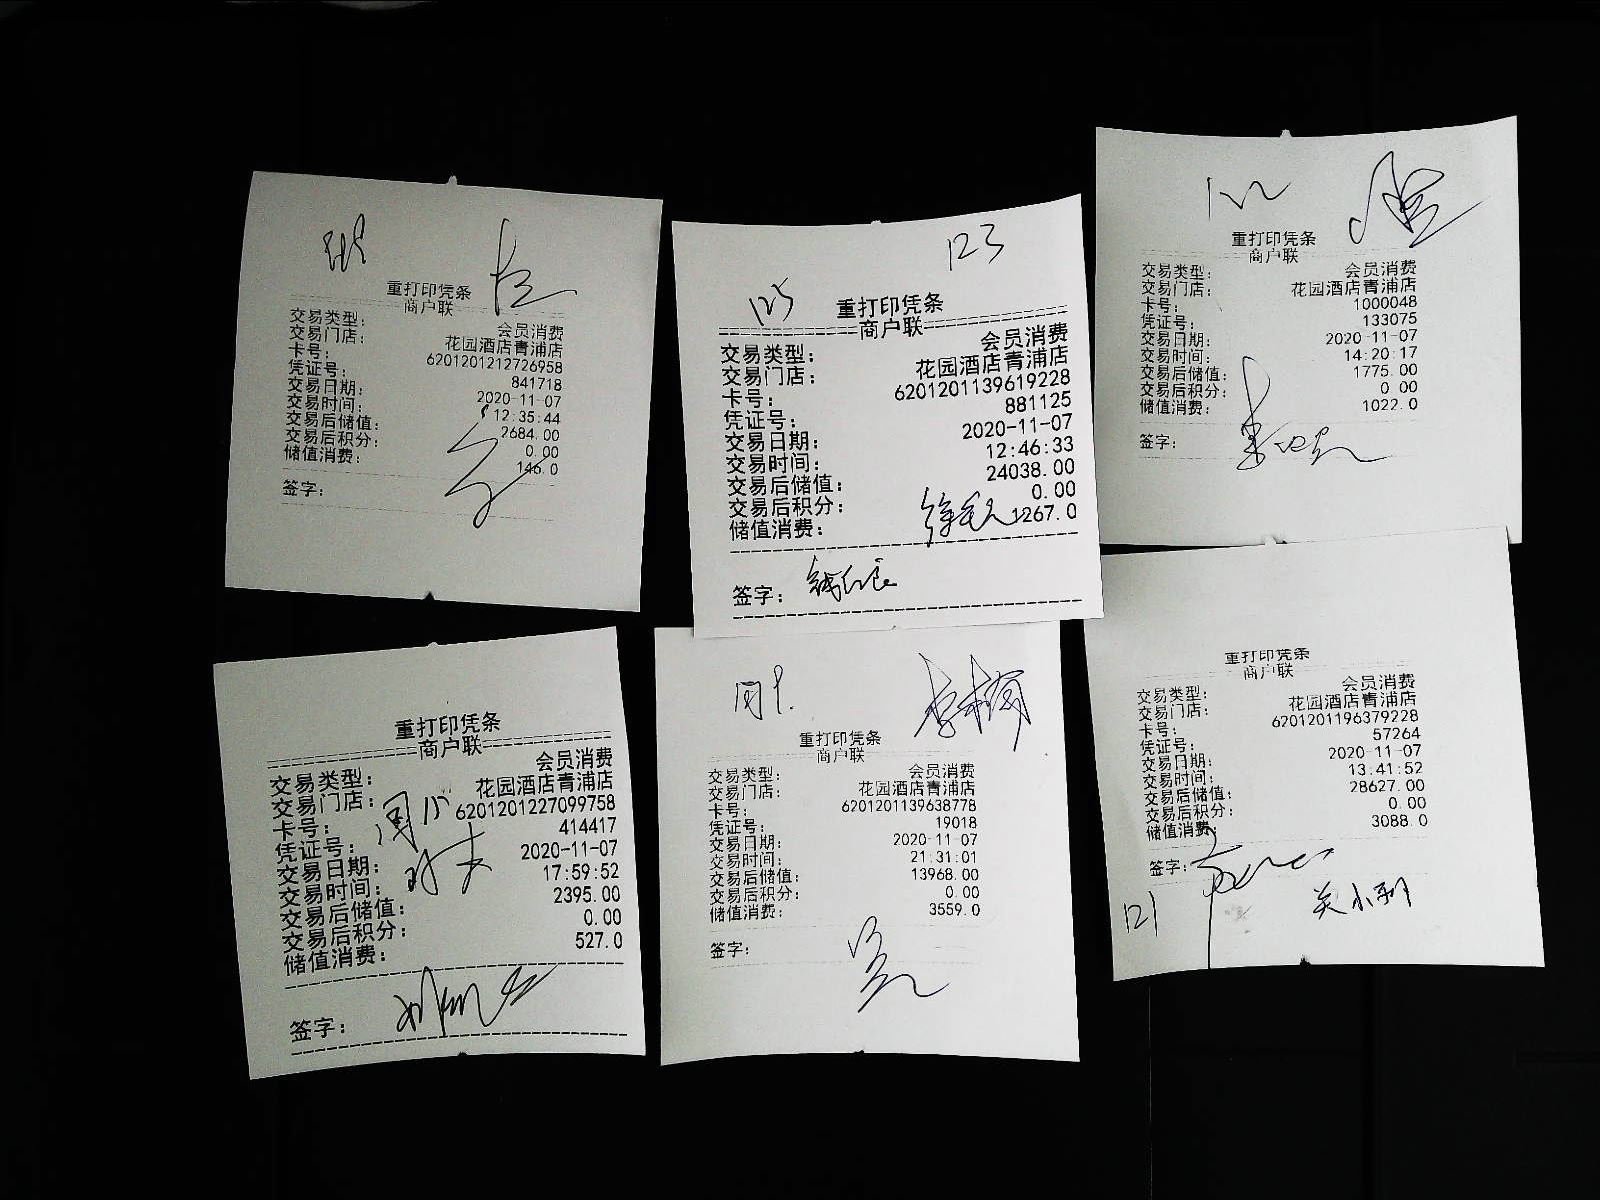 重打印凭条
商户联
交易类型: 会员消费
交易门店: 花园酒店青浦店
卡号: 6201201212726958
凭证号: 841718
交易日期: 2020-11-07
交易时间: 12:35:44
交易后储值: 2684.00
交易后积分: 0.00
储值消费: 146.0
签字:
123
125
重打印凭条
商户联
交易类型: 会员消费
交易门店: 花园酒店青浦店
卡号: 6201201139619228
凭证号: 881125
交易日期: 2020-11-07
交易时间: 12:46:33
交易后储值: 24038.00
交易后积分: 0.00
储值消费: 1267.0
签字:
122
重打印凭条
商户联
交易类型: 会员消费
交易门店: 花园酒店青浦店
卡号: 1000048
凭证号: 133075
交易日期: 2020-11-07
交易时间: 14:20:17
交易后储值: 1775.00
交易后积分: 0.00
储值消费: 1022.0
签字:
重打印凭条
商户联
交易类型: 会员消费
交易门店: 花园酒店青浦店
卡号: 6201201227099758
凭证号: 414417
交易日期: 2020-11-07
交易时间: 17:59:52
交易后储值: 2395.00
交易后积分: 0.00
储值消费: 527.0
签字:
重打印凭条
商户联
交易类型: 会员消费
交易门店: 花园酒店青浦店
卡号: 6201201139638778
凭证号: 19018
交易日期: 2020-11-07
交易时间: 21:31:01
交易后储值: 13968.00
交易后积分: 0.00
储值消费: 3559.0
签字:
重打印凭条
商户联
交易类型: 会员消费
交易门店: 花园酒店青浦店
卡号: 6201201196379228
凭证号: 57264
交易日期: 2020-11-07
交易时间: 13:41:52
交易后储值: 28627.00
交易后积分: 0.00
储值消费: 3088.0
签字:
关小利
121